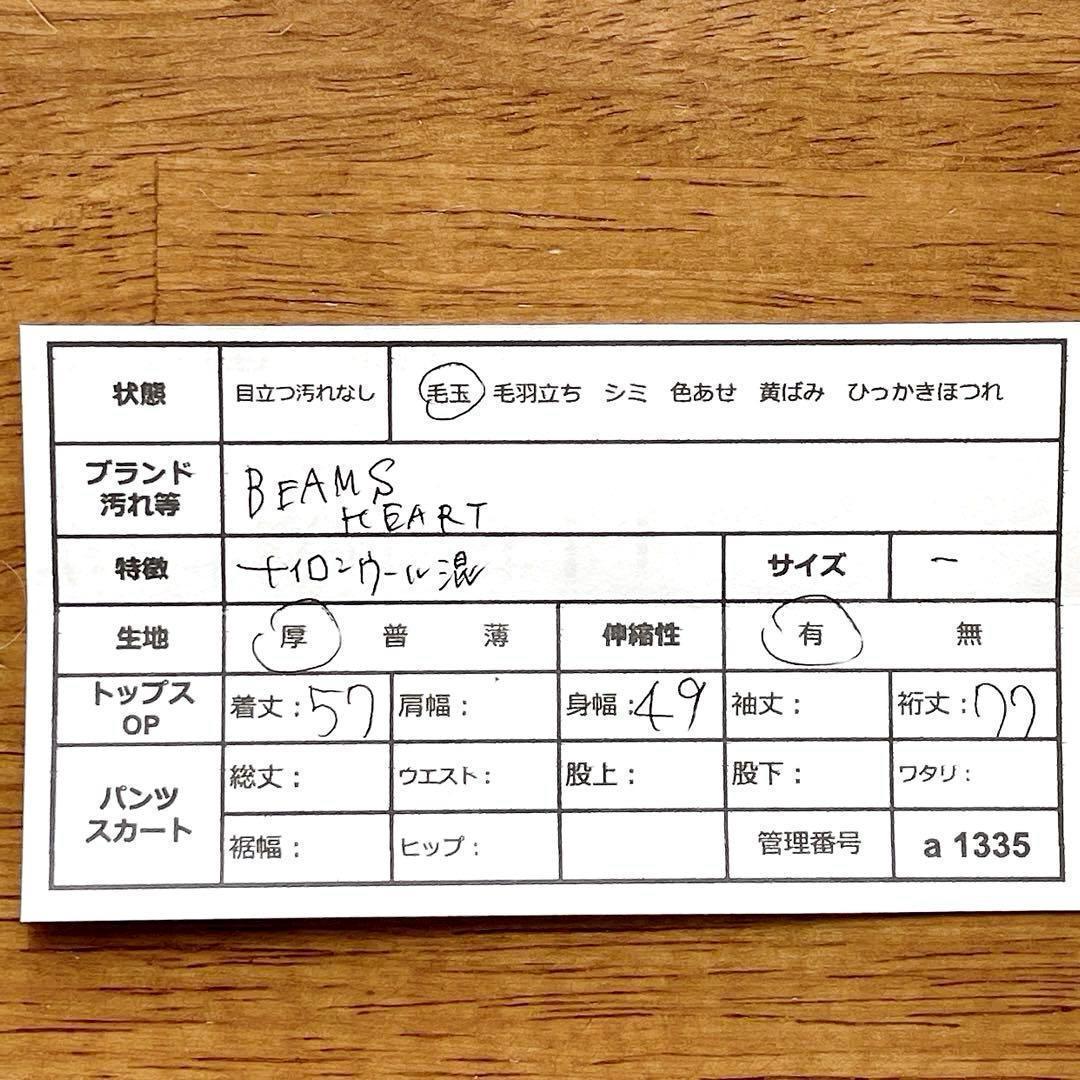 状態 目立つ汚れなし 毛玉 毛羽立ち シミ 色あせ 黄ばみ ひっかきほつれ
ブランド
汚れ等
BEAMS
HEART
特徴 ナイロンウール混 サイズ ー
生地 厚 普 薄 伸縮性 有 無
トップス
OP
着丈:57 肩幅: 身幅:49 袖丈: 裄丈:77
パンツ
スカート
総丈: ウエスト: 股上: 股下: ワタリ:
裾幅: ヒップ: 管理番号 a 1335